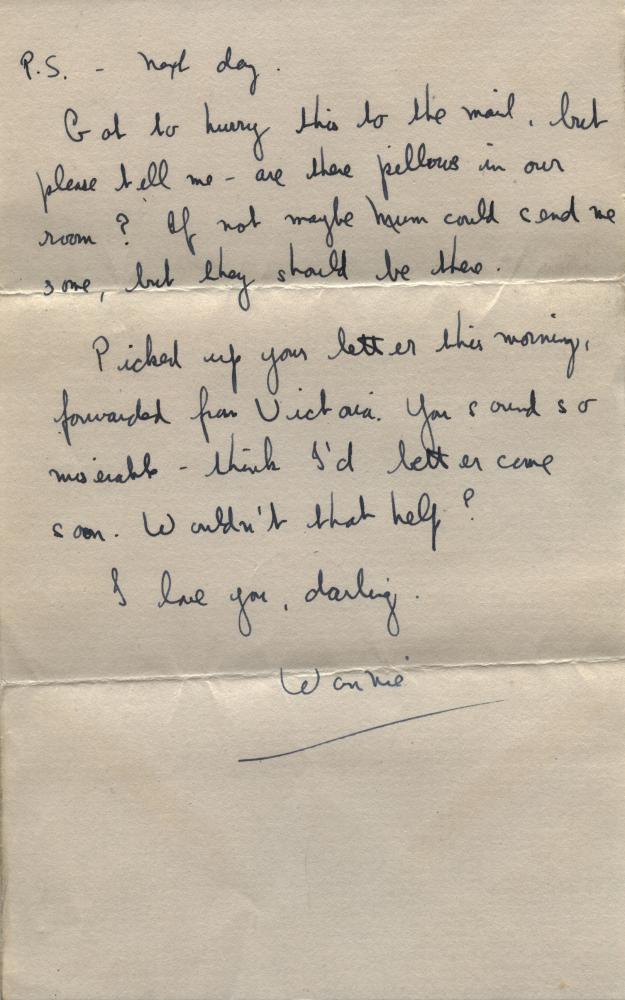 P.S. - Next day.
Got to hurry this to the mail, but
please tell me - are there pillows in our
room? If not maybe Mum could send me
some, but they should be there.
Picked up your letter this morning,
forwarded from Victoria. You sound so
miserable - think I'd better come
soon. Wouldn't that help?
I love you, darling.
Wonnie